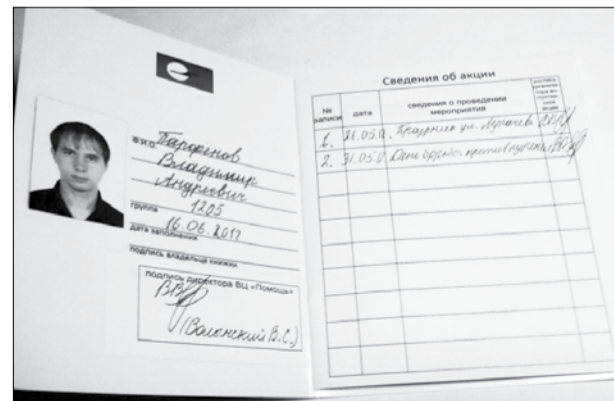 Ф.И.О. Парфенов
Владимир
Андреевич
группа 1205
16.06.2017
дата заполнения
подпись владельца книжки
подпись директора ВЦ «Помощь»
(Волонский В.С.)
Сведения об акции
№ записи дата сведения о проведении мероприятия
1. 26.05.0. Праздник ул.
2. 31.05.0 День борьбы против курения